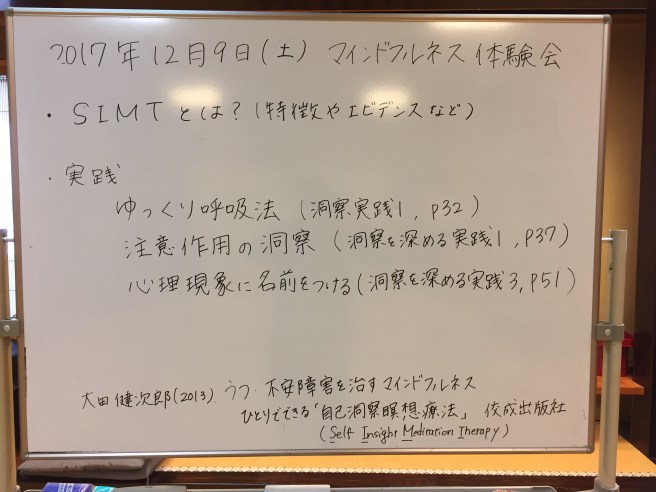 2017年12月9日(土) マインドフルネス体験会
・SIMTとは?(特徴やエビデンスなど)
・実践
ゆっくり呼吸法 (洞察実践1, p32)
注意作用の洞察 (洞察を深める実践1, p37)
心理現象に名前をつける(洞察を深める実践3, p51)
大田健次郎(2013). うつ・不安障害を治すマインドフルネス
ひとりでできる「自己洞察瞑想療法」 佼成出版社
(Self Insight Meditation Therapy)